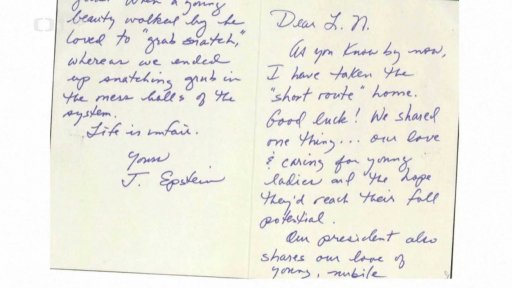 When a young
beauty walked by he
loved to "grab snatch,"
whereas we ended
up snatching grub in
the mess halls of the
system.
Life is unfair.
Yours
J. Epstein
Dear L. N.
As you know by now,
I have taken the
"short route" home.
Good luck! We shared
one thing... our love
& caring for young
ladies and the hope
they'd reach their full
potential.
Our president also
shares our love of
young, nubile